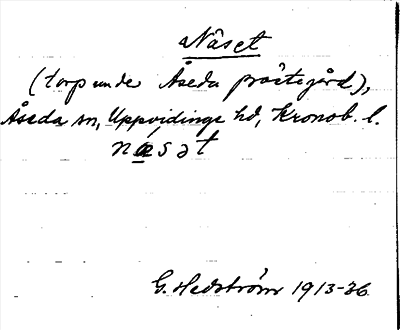 Näset
(torp under Åseda prästegård),
Åseda sn, Uppvidinge hd, Kronob. l.
næ̀sət
G. Hedström 1913-36